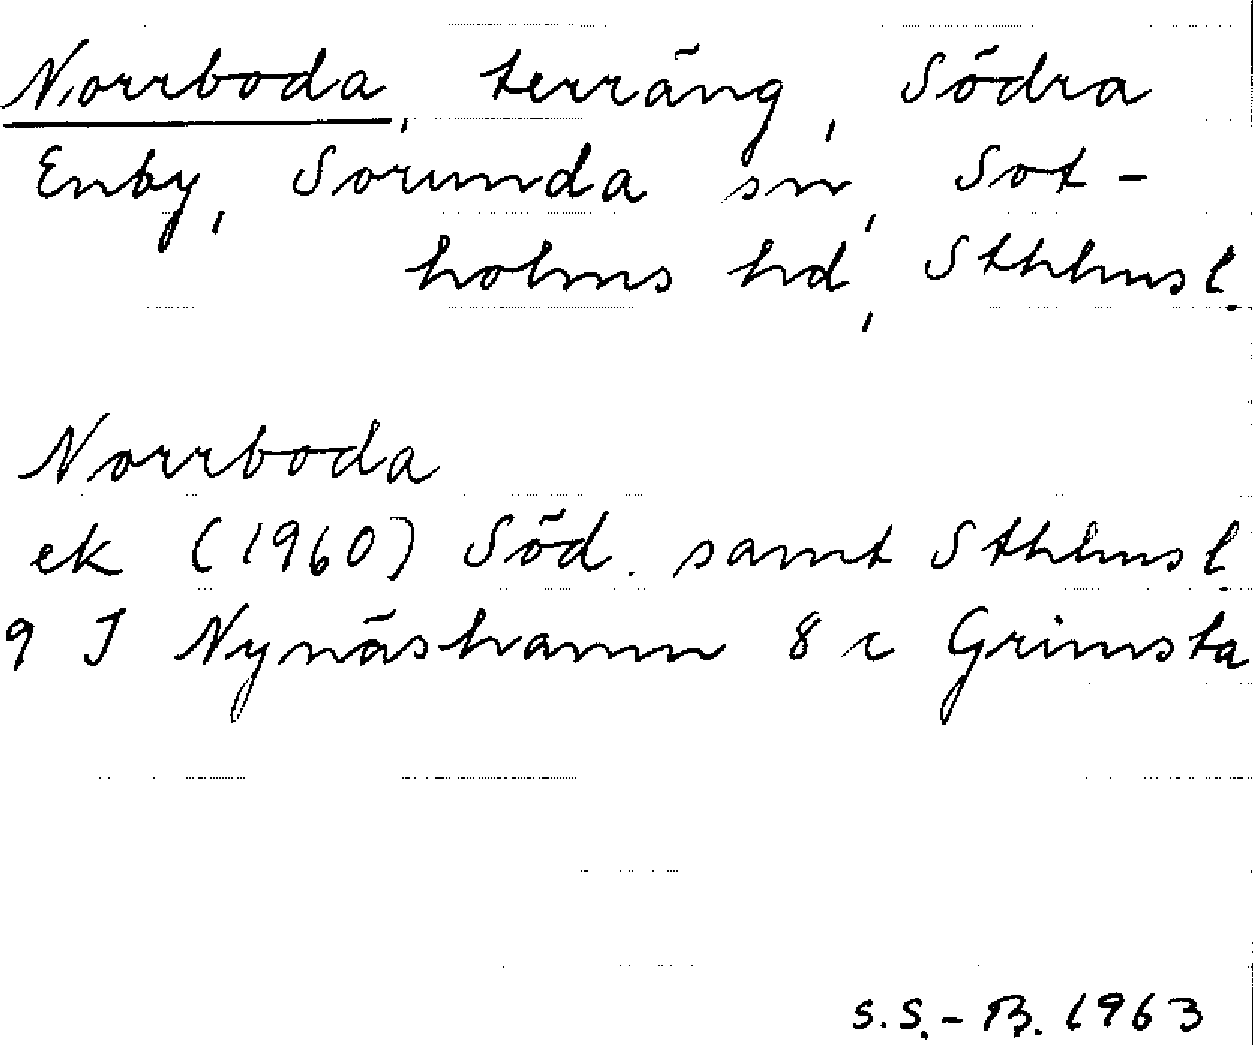 Norrboda, terräng, Södra
Enby, Sorunda sn, Sot-
holms hd, Sthlmsl.
Norrboda
ek (1960) Söd. samt Sthlmsl.
9 I Nynäshamn 8 c Grimsta
S.S.-B. 1963